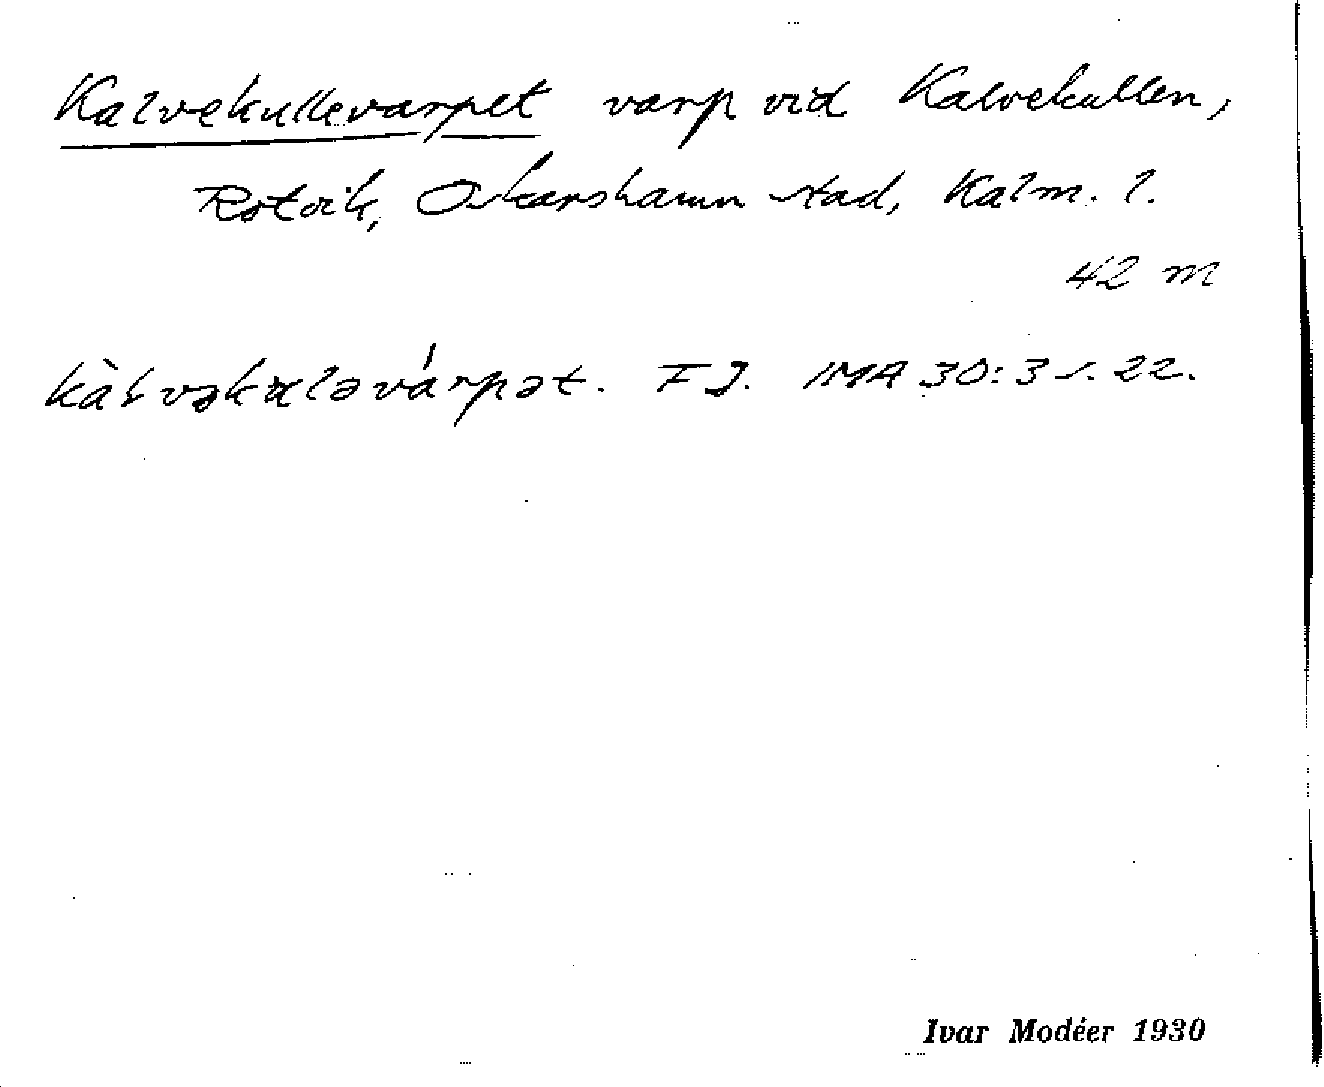 Kalvekullevarpet varp vid Kalvekullen,
Rotvik, Oskarshamn stad, Kalm. l.
42 m
kàlvəkuləvárpət. F J. IMA 30:3 s. 22.
Ivar Modéer 1930